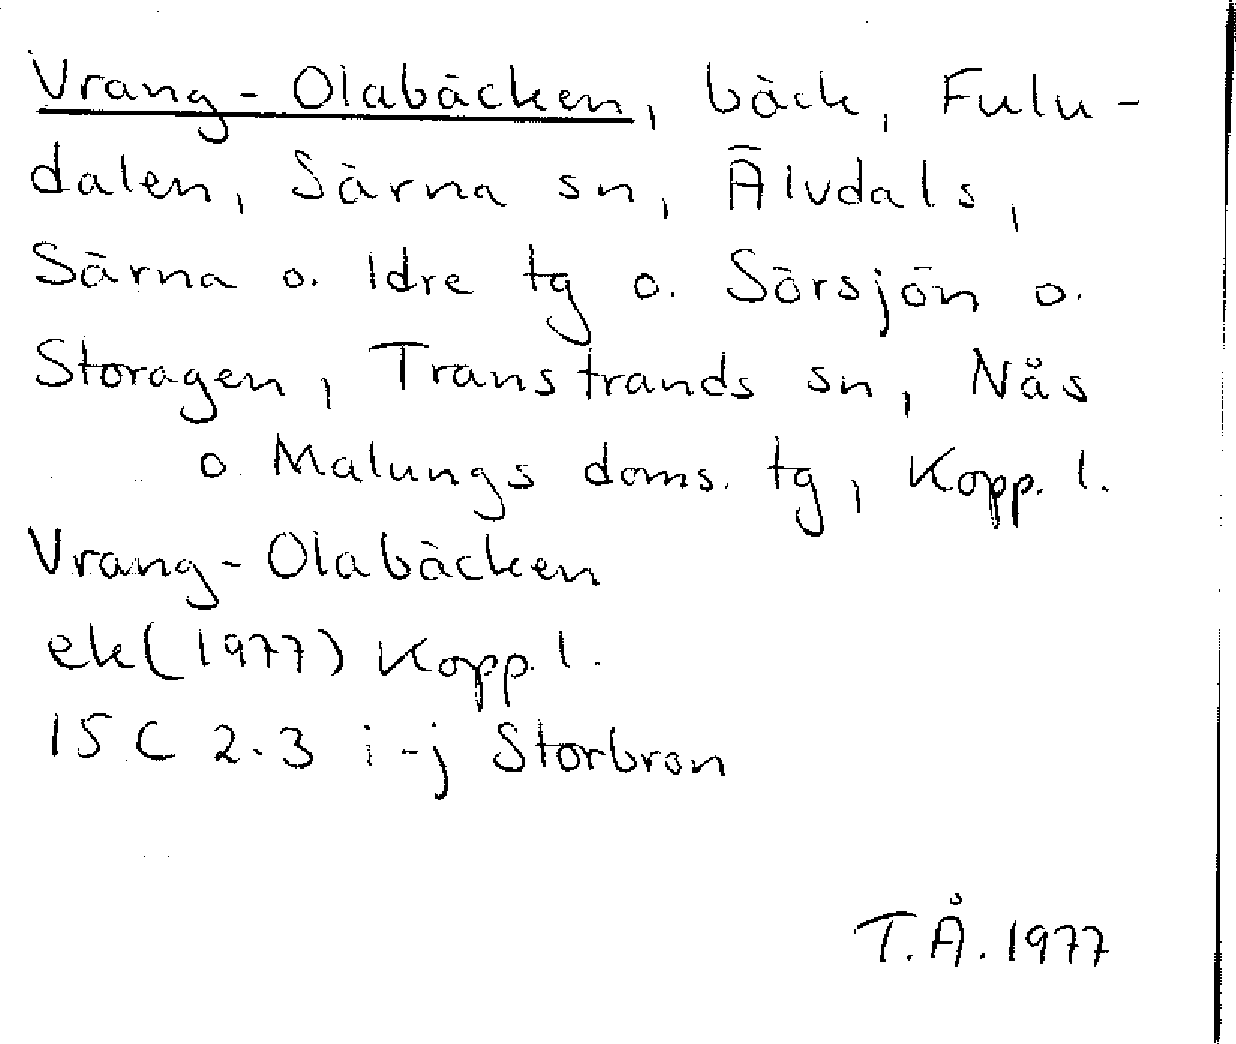 Vrang-Olabäcken, bäck, Fulu-
dalen, Särna sn, Älvdals,
Särna o. Idre tg o. Sörsjön o.
Storagen, Transtrands sn, Nås
o Malungs doms. tg, Kopp. l.
Vrang-Olabäcken
ek(1977) Kopp. l.
15 C 2-3 i-j Storbron
T.Å. 1977